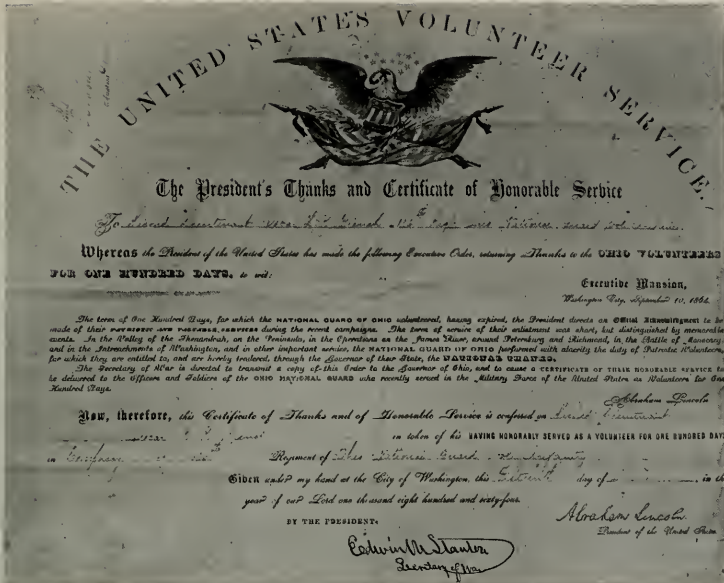 THE UNITED STATES VOLUNTEER SERVICE.
The President's Thanks and Certificate of Honorable Service
To Second Lieutenant
Whereas the President of the United States has made the following Executive Order, returning Thanks to the OHIO VOLUNTEERS
FOR ONE HUNDRED DAYS, to wit:
Executive Mansion,
Washington City, September 10, 1864.
The term of One Hundred Days, for which the NATIONAL GUARD OF OHIO volunteered, having expired, the President directs an Official Acknowledgment to be
made of their PATRIOTIC AND VALUABLE SERVICES during the recent campaigns. The term of service of their enlistment was short, but distinguished by memorable
events. In the Valley of the Shenandoah, on the Peninsula, in the Operations on the James River, around Petersburg and Richmond, in the Battle of Monocacy,
and in the Intrenchments of Washington, and in other important service, the NATIONAL GUARD OF OHIO performed with alacrity the duty of Patriotic Volunteers,
for which they are entitled to, and are hereby tendered, through the Governor of their State, the NATIONAL THANKS.
The Secretary of War is directed to transmit a copy of this Order to the Governor of Ohio, and to cause a CERTIFICATE OF THEIR HONORABLE SERVICE to
be delivered to the Officers and Soldiers of the OHIO NATIONAL GUARD who recently served in the Military Force of the United States as Volunteers for One
Hundred Days.
Abraham Lincoln
Now, therefore, this Certificate of Thanks and of Honorable Service is conferred on Second Lieutenant
in token of his HAVING HONORABLY SERVED AS A VOLUNTEER FOR ONE HUNDRED DAYS
in Company Regiment of Ohio National Guard
Given under my hand at the City of Washington, this day of in the
year of our Lord one thousand eight hundred and sixty-four.
BY THE PRESIDENT:
Abraham Lincoln
President of the United States
Edwin M Stanton
Secretary of War